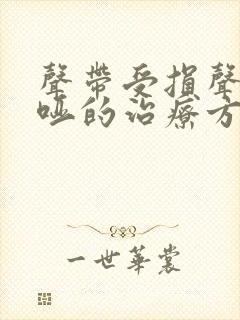 聲帶受損聲
啞的治療方
一世華裳